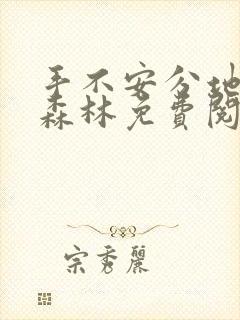 手不安分地
森林免费阅
宗秀丽